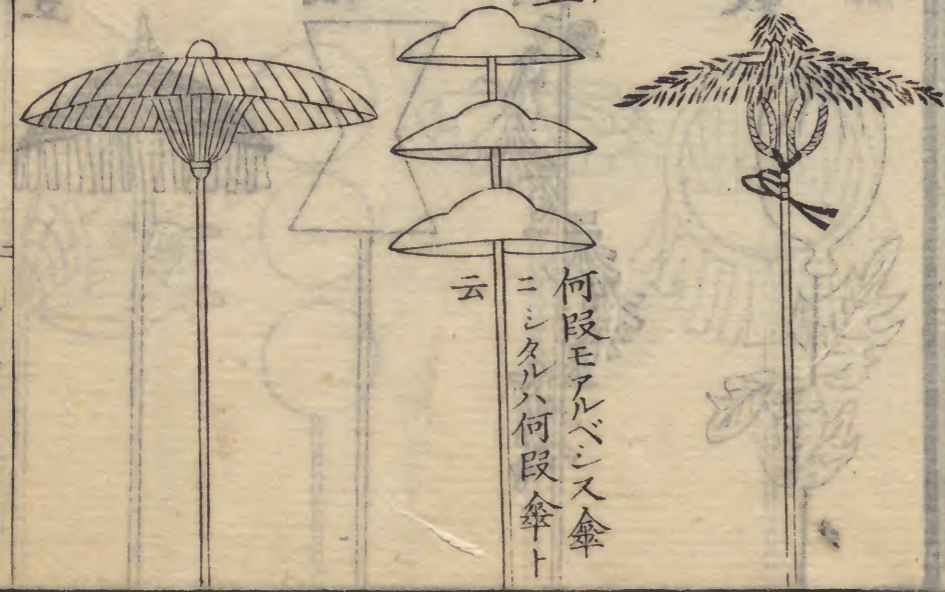 何段モアルベシス傘
ニシタルハ何段傘ト
云